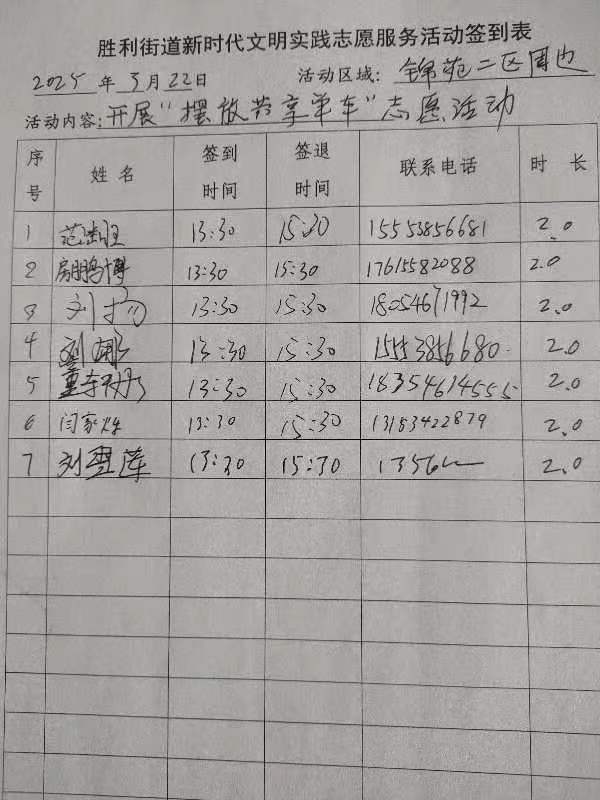 胜利街道新时代文明实践志愿服务活动签到表
2025年3月22日 活动区域: 锦苑二区周边
活动内容: 开展"摆放共享单车"志愿活动
序号 姓名 签到时间 签退时间 联系电话 时长
1 13:30 15:30 15553856681 2.0
2 房鹏博 13:30 15:30 17615582088 2.0
3 刘扬 13:30 15:30 18054671992 2.0
4 刘娜 13:30 15:30 15553856680 2.0
5 13:30 15:30 18354614555 2.0
6 闫家 13:30 15:30 13183422879 2.0
7 刘雪莲 13:30 15:30 13561 2.0